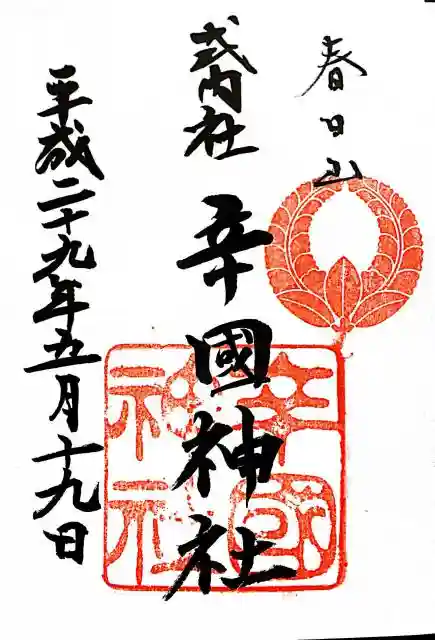 春日山
式内社
辛國神社
辛國神社
平成二十九年五月十九日